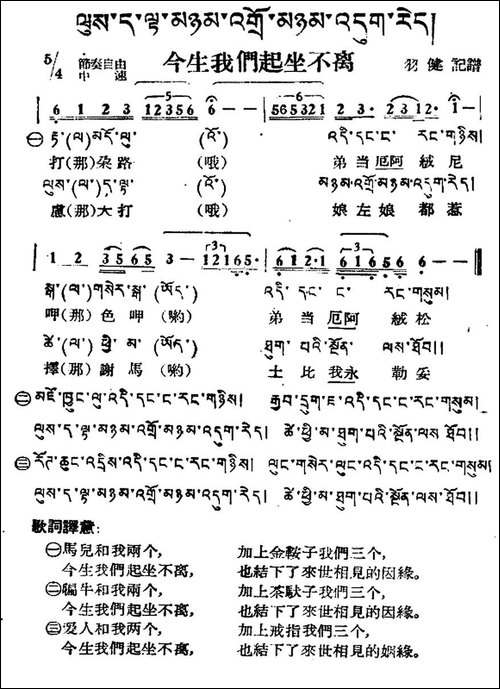 ལུས་ད་ལྟ་མཉམ་འགྲོ་མཉམ་འདུག་རེད།
5/4 節奏自由 中速 今生我們起坐不离 羽健記譜
6 1 2 3 12356 6 - - 565321 2 3· 2312· 1 -
㊀ རྟ་(ལ)མདོ་ལུ་ (འོ་) འདི་དང་ང་ རང་གཉིས།
打(那)朶路 (哦) 弟当厄阿 絨尼
ལུས་(ལ་)ད་ལྟ་ (འོ་) མཉམ་འགྲོ་མཉམ་འདུག་རེད།
慮(那)大打 (哦) 娘左娘 都惹
1 2 35 65 3 - 12165 612·1 61656 6 - -
སྒ་(ལ་)གསེར་སྒ་ (ཨོད་) འདི་དང་ ང་ རང་གསུམ།
呷(那)色呷(喲) 弟当厄阿 絨松
ཚེ་(ལ་) ཕྱི་ མ་ (ཨོད་) ཐུག་ པའི་སྨོན་ ལས་ཐོབ།།
擇(那)謝馬(喲) 土比我永 勒妥
㊁ མཛོ་ཁྱུང་ལུ་འདི་དང་ང་རང་གཉིས། རྒྱབ་དྲུག་ཇ་འདི་དང་ང་རང་གསུམ།
ལུས་ད་ལྟ་མཉམ་འགྲོ་མཉམ་འདུག་རེད། ཚེ་ཕྱི་མ་ཐུག་པའི་སྨོན་ལས་ཐོབ།།
㊂ རོཊ་ཆུང་འདྲིས་འདི་དང་ང་རང་གཉིས། ལུང་གསེར་ལུང་འདི་དང་ང་རང་གསུམ།
ལུས་ད་ལྟ་མཉམ་འགྲོ་མཉམ་འདུག་རེད། ཚེ་ཕྱི་མ་ཐུག་པའི་སྨོན་ལས་ཐོབ།།
歌詞譯意：
㊀馬兒和我兩个， 加上金鞍子我們三个，
今生我們起坐不离， 也結下了來世相見的因緣。
㊁犏牛和我兩个， 加上茶馱子我們三个，
今生我們起坐不离， 也結下了來世相見的因緣。
㊂爱人和我两个， 加上戒指我們三个，
今生我們起坐不离， 也結下了來世相見的姻緣。